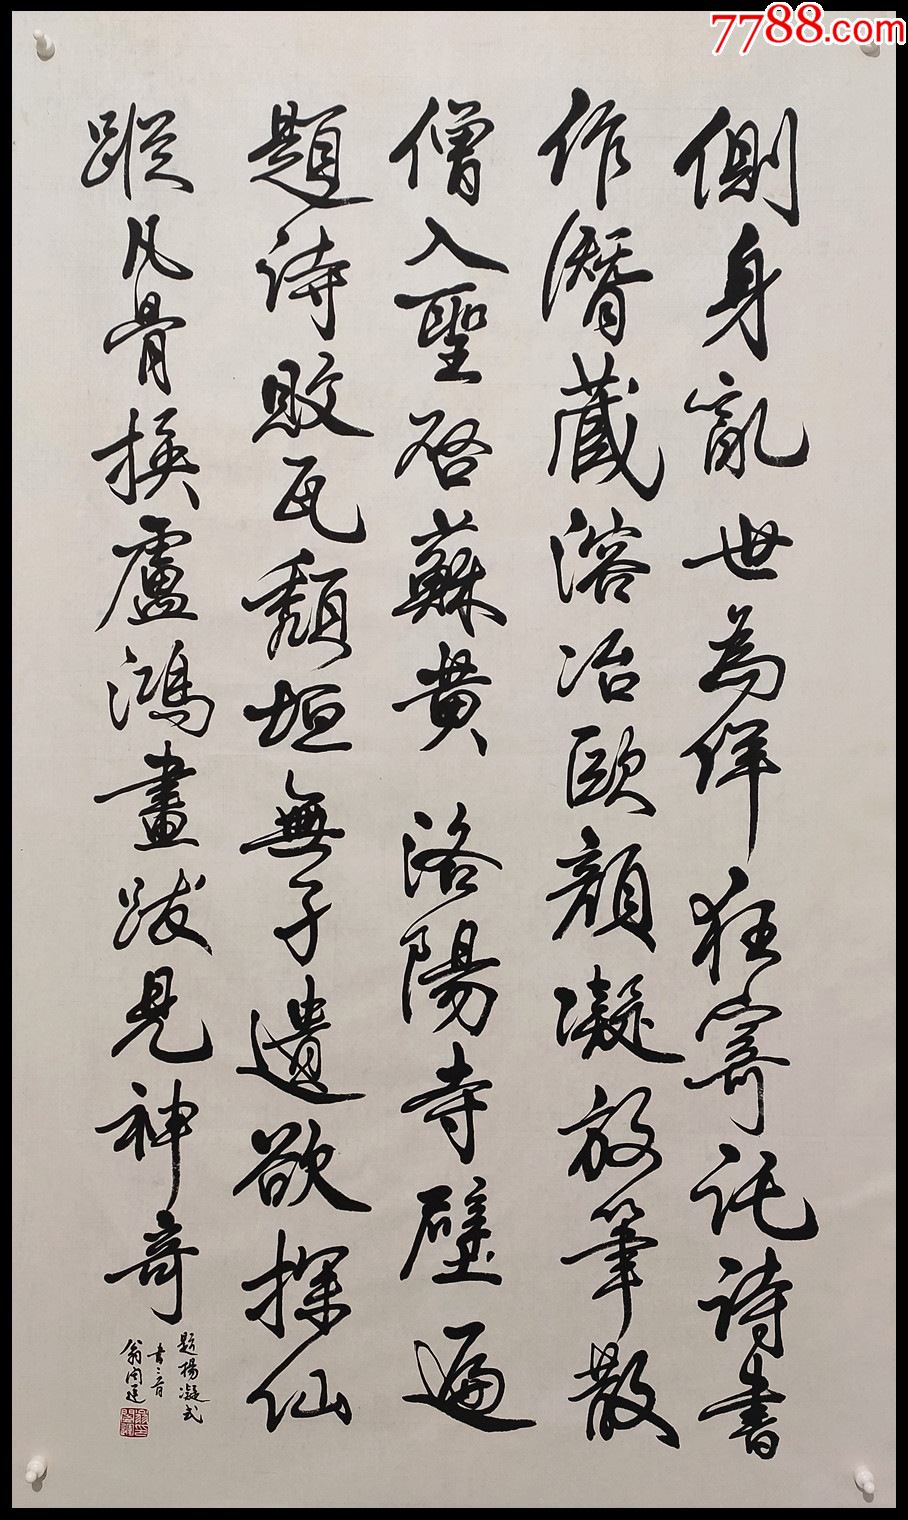 7788.com
側身亂世為佯狂寄託詩書
作潛藏溶冶歐顏凝放筆散
僧入聖啓蘇黃洛陽寺壁遍
題詩敗瓦頹垣無孑遺欲探仙
蹤凡骨換盧鴻畫跋見神奇
題楊凝式
書二首
翁闓運